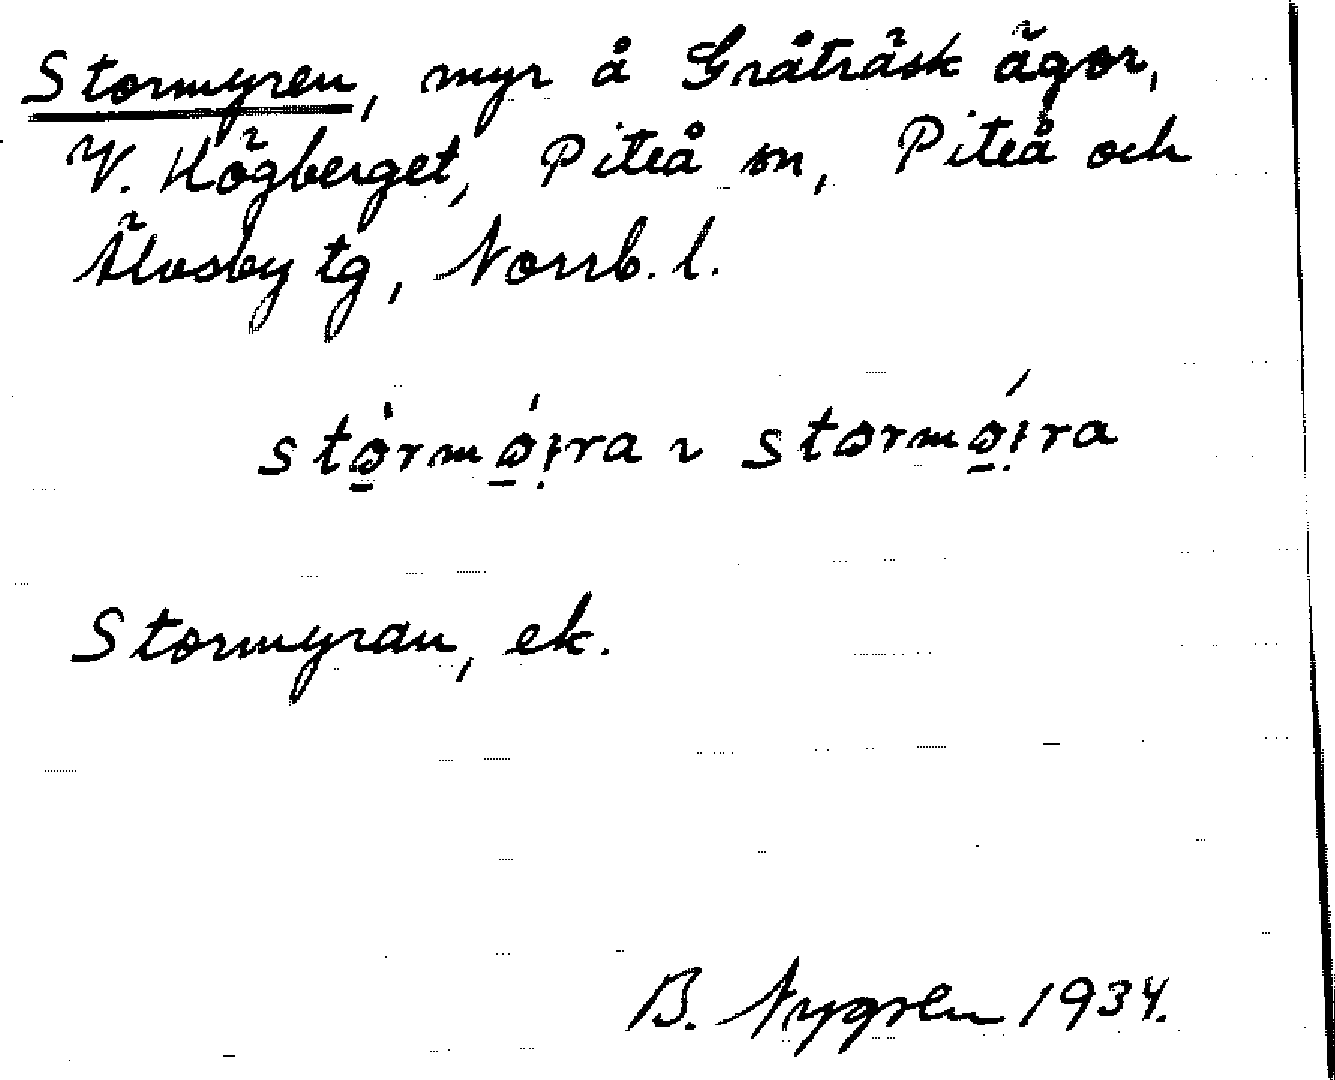 Stormyren, myr å Gråträsk ägor,
V. Högberget, Piteå sn, Piteå och
Älvsby tg, Norrb. l.
stø̠rmø̠ịra ~ størmø̠ịra
Stormyran, ek.
B. Nygren 1934.